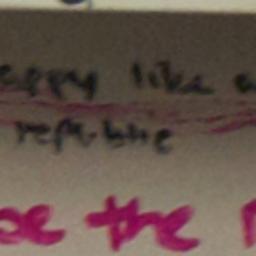 appy like a
republic
be the